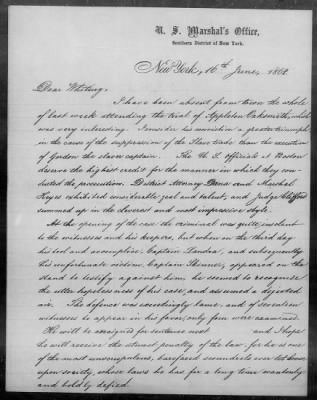 U. S. Marshal's Office,
Southern District of New York.
New York, 16th June, 1862.
Dear Whiting,
I have been absent from town the whole
of last week attending the trial of Appleton Oaksmith, which
was very interesting. I consider his conviction a greater triumph
in the cause of the suppression of the Slave trade than the execution
of Gordon the slave captain. The U. S. officials at Boston
deserve the highest credit for the manner in which they con-
ducted the prosecution. District Attorney Dana and Marshal
Keyes exhibited considerable zeal and talent, and Judge Clifford
summed up in the clearest and most impressive style.
At the opening of the case the criminal was quite insolent
to the witnesses and his keepers, but when on the third day
his tool and accomplice Captain Landra, and subsequently
his unfortunate victim, Captain Skinner, appeared on the
stand to testify against him he seemed to recognise
the utter hopelessness of his case, and assumed a dejected
air. The defence was exceedingly lame, and of seventeen
witnesses to appear in his favor, only four were examined.
He will be assigned for sentence next and I hope
he will receive the utmost penalty of the law, for he is one
of the most unscrupulous, barefaced scoundrels ever let loose
upon society, whose laws he has for a long time wantonly
and boldly defied.